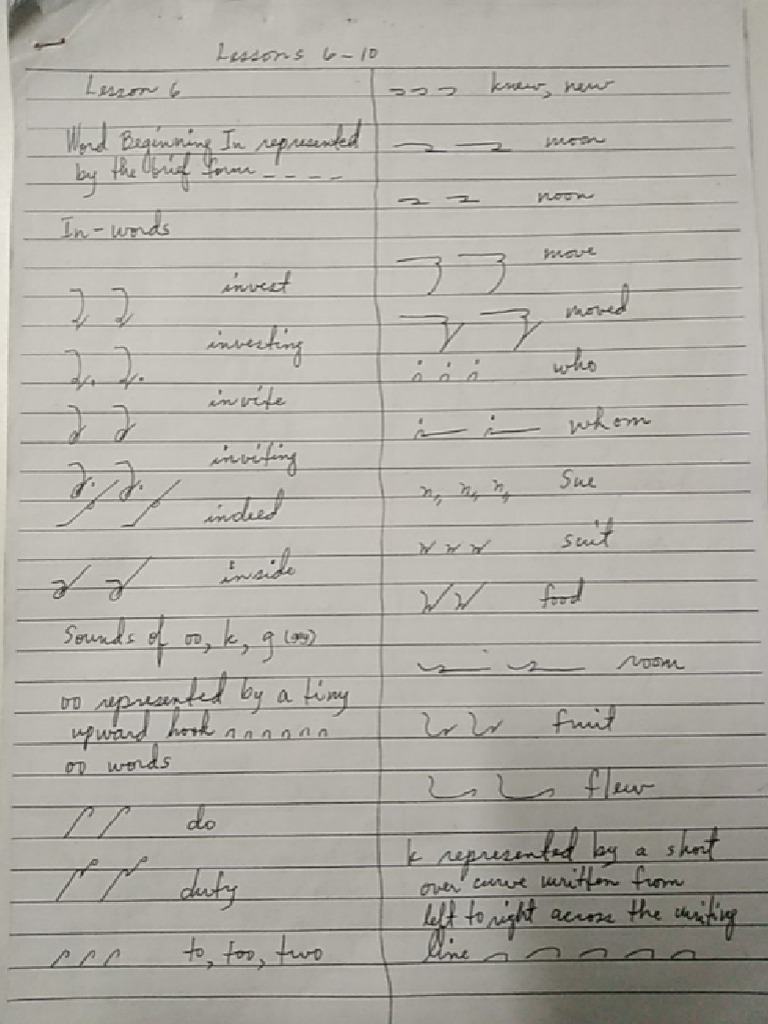 Lessons 6-10
Lesson 6
Word Beginning In represented
by the brief form
In-words
invest
investing
invite
inviting
indeed
inside
Sounds of oo, k, g
oo represented by a tiny
upward hook
oo words
do
duty
to, too, two
knew, new
moon
noon
move
moved
who
whom
Sue
suit
food
room
fruit
flew
k represented by a short
over curve written from
left to right across the writing
line